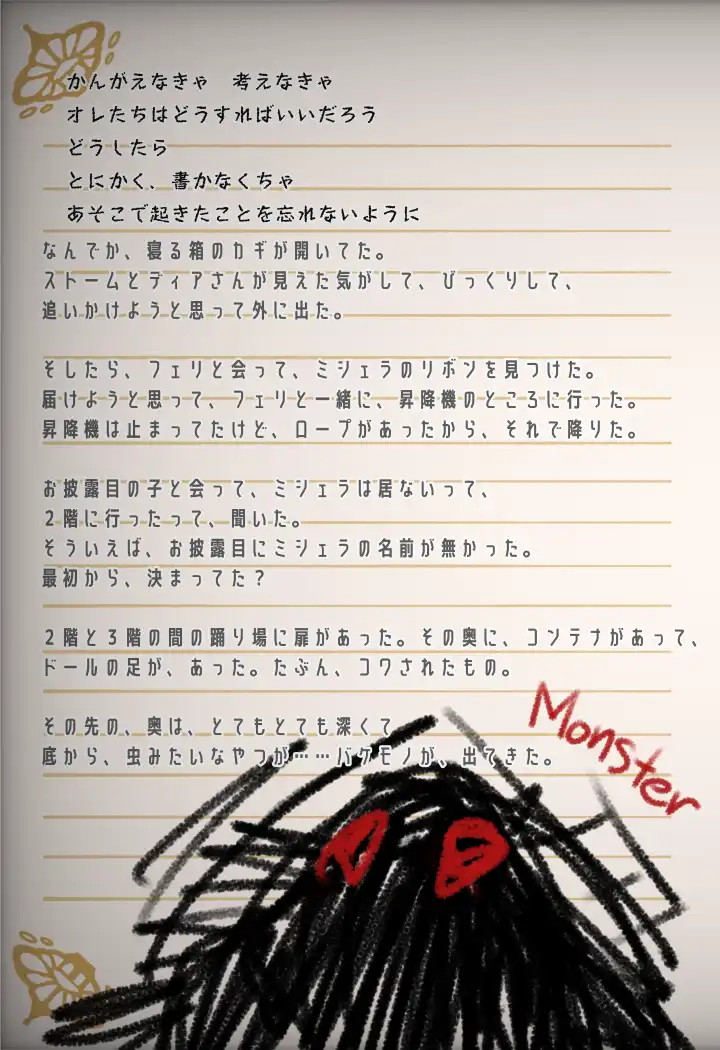 かんがえなきゃ　考えなきゃ
オレたちはどうすればいいだろう
どうしたら
とにかく、書かなくちゃ
あそこで起きたことを忘れないように
なんでか、寝る箱のカギが開いてた。
ストームとディアさんが見えた気がして、びっくりして、
追いかけようと思って外に出た。
そしたら、フェリと会って、ミシェラのリボンを見つけた。
届けようと思って、フェリと一緒に、昇降機のところに行った。
昇降機は止まってたけど、ロープがあったから、それで降りた。
お披露目の子と会って、ミシェラは居ないって、
２階に行ったって、聞いた。
そういえば、お披露目にミシェラの名前が無かった。
最初から、決まってた？
２階と３階の間の踊り場に扉があった。その奥に、コンテナがあって、
ドールの足が、あった。たぶん、コワされたもの。
その先の、奥は、とてもとても深くて
底から、虫みたいなやつが……バケモノが、出てきた。
Monster